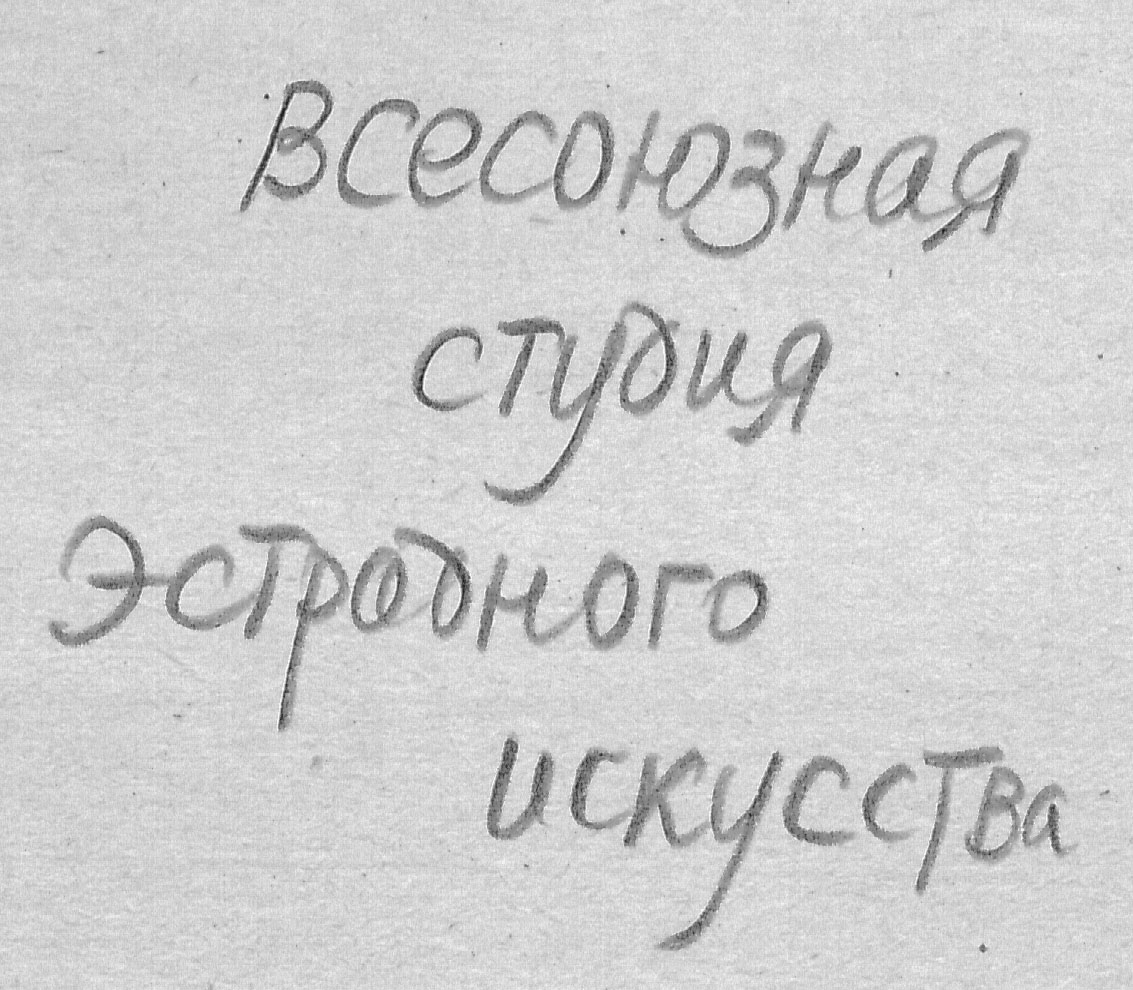 Всесоюзная
студия
эстрадного
искусства